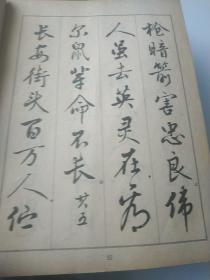 枪暗箭害忠良偉
人虽去英灵在看
尔鼠辈命不长 其五
长安街头百万人伫